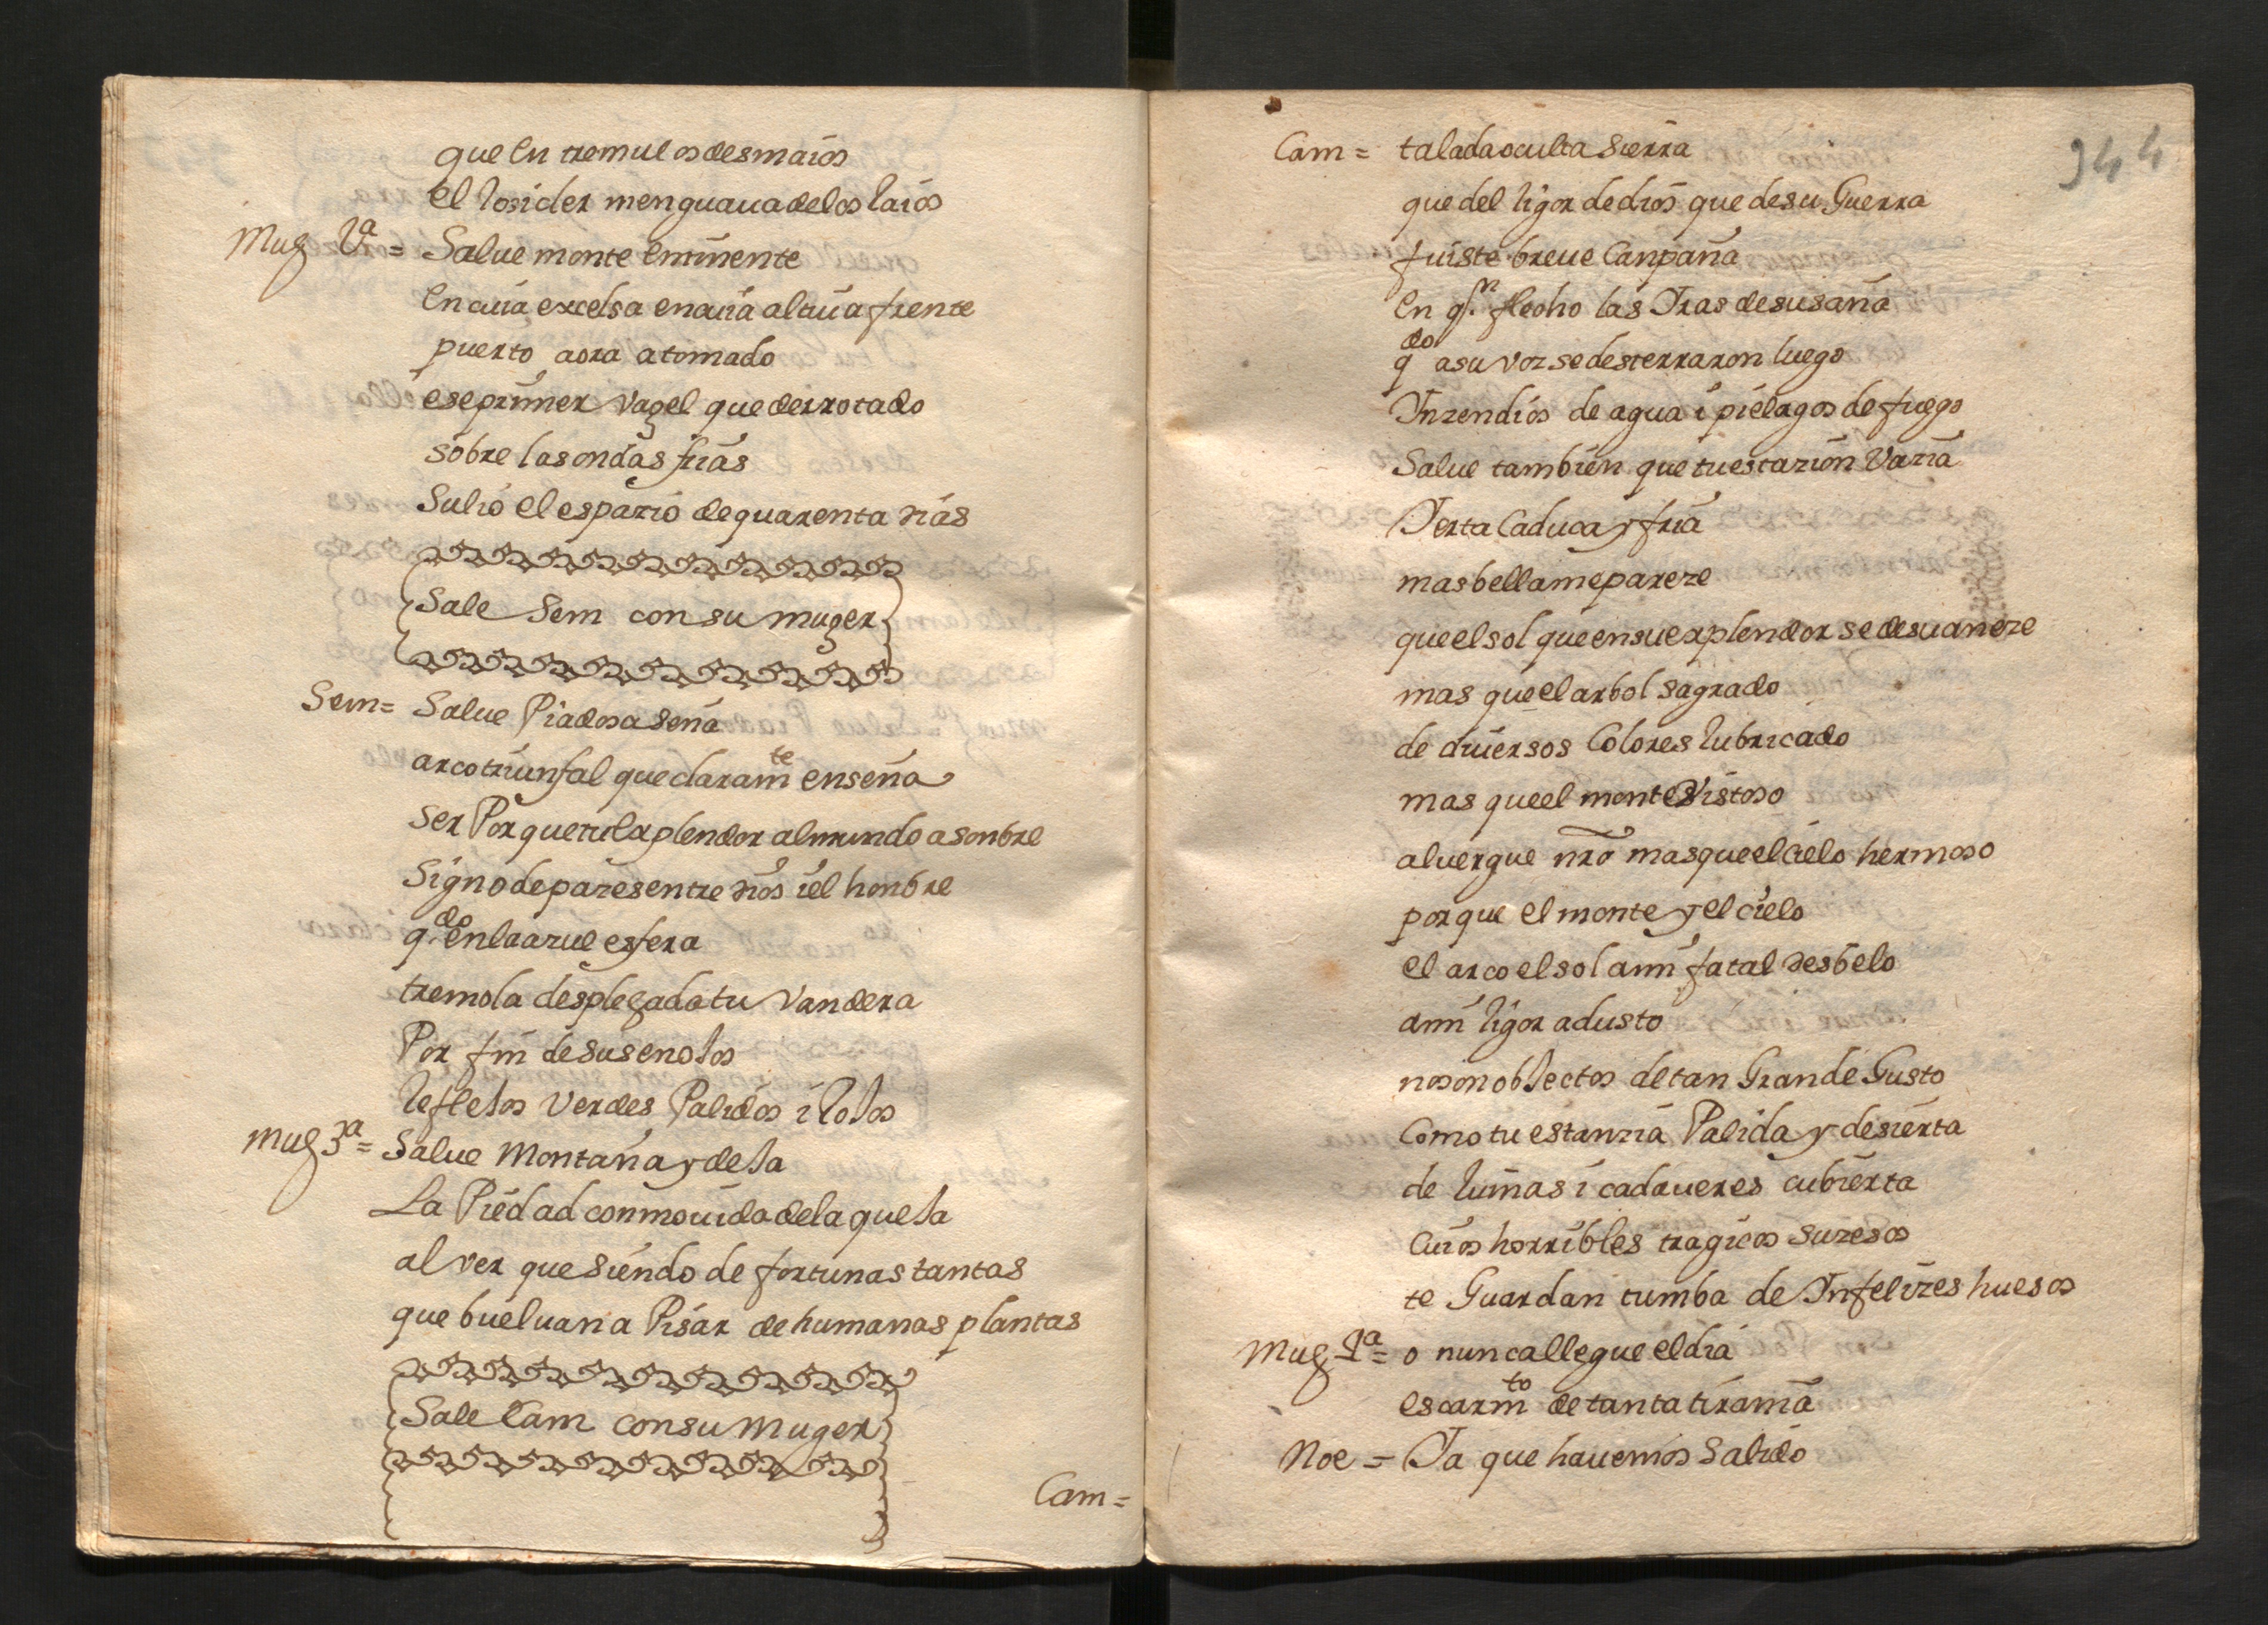 que en tremulos desmaios
el rosicler menguaua de los raios
Mug V.ª = Salue monte eminente
en cuia excelsa en cuia altiua frente
puerto aora a tomado
ese primer vagel que derrotado
sobre las ondas frias
Sulio el espazio de quarenta dias
Sale Sem con su muger
Sem = Salue Piadosa seña
arco triunfal que claramte enseña
ser Por que tu explendor al mundo asonbre
Signo de pazes entre dios i el honbre
qdo en la azul esfera
tremola desplegada tu vandera
Por fin de sus enojos
reflejos verdes Palidos i rojos
mug 3ª = Salue Montaña y deja
La Piedad conmouida de la queja
al ver que siendo de fortunas tantas
que bueluan a Pisar de humanas plantas
Sale Cam con su Muger
Cam =
344
Cam = talada oculta sierra
que del rigor de dios que de su Guerra
fuiste breue Canpaña
en qn flecho las Iras de su saña
qdo a su voz se desterraron luego
Inzendios de agua i pielagos de fuego
Salue tambien que tu estazion Varia
Ierta Caduca y fria
mas bella me pareze
que el sol que en su explendor se desuaneze
mas que el arbol sagrado
de diuersos Colores rubricado
mas que el monte Vistoso
aluergue nro mas que el cielo hermoso
porque el monte y el cielo
el arco el sol a mi fatal desbelo
a mi rigor adusto
no son objectos de tan Grande Gusto
Como tu estanzia Palida y desierta
de ruinas i cadaueres cubierta
Cuios horribles tragicos suzesos
te Guardan tumba de Infelizes huesos
Mug 1ª = o nunca llegue el dia
escarmto de tanta tirania
Noe = Ia que hauemos Salido